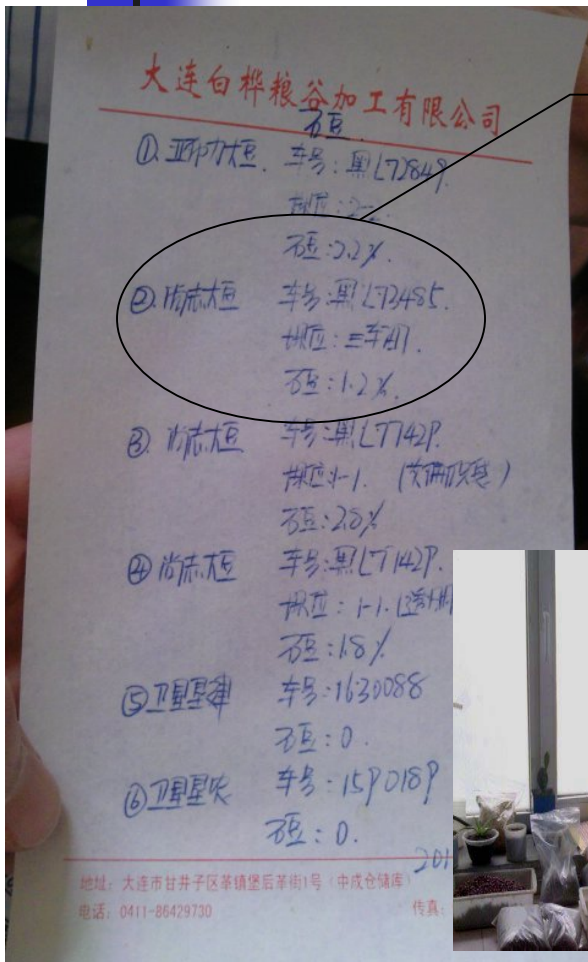 大连白桦粮谷加工有限公司
石豆
①.亚布力大豆. 车号:黑L72849.
石豆:2.2%.
②.尚志大豆 车号:黑L73485.
石豆:1.2%.
③.尚志大豆 车号:黑L77429.
1-1.
石豆:2.8%
④尚志大豆 车号:黑L71429.
1-1.
石豆:1.8%
⑤卫星星 车号:1630088
石豆:0.
⑥卫星星农 车号:1590189
石豆:0.
201
地址:大连市甘井子区革镇堡后革街1号(中成仓储库)
电话:0411-86429730 传真: